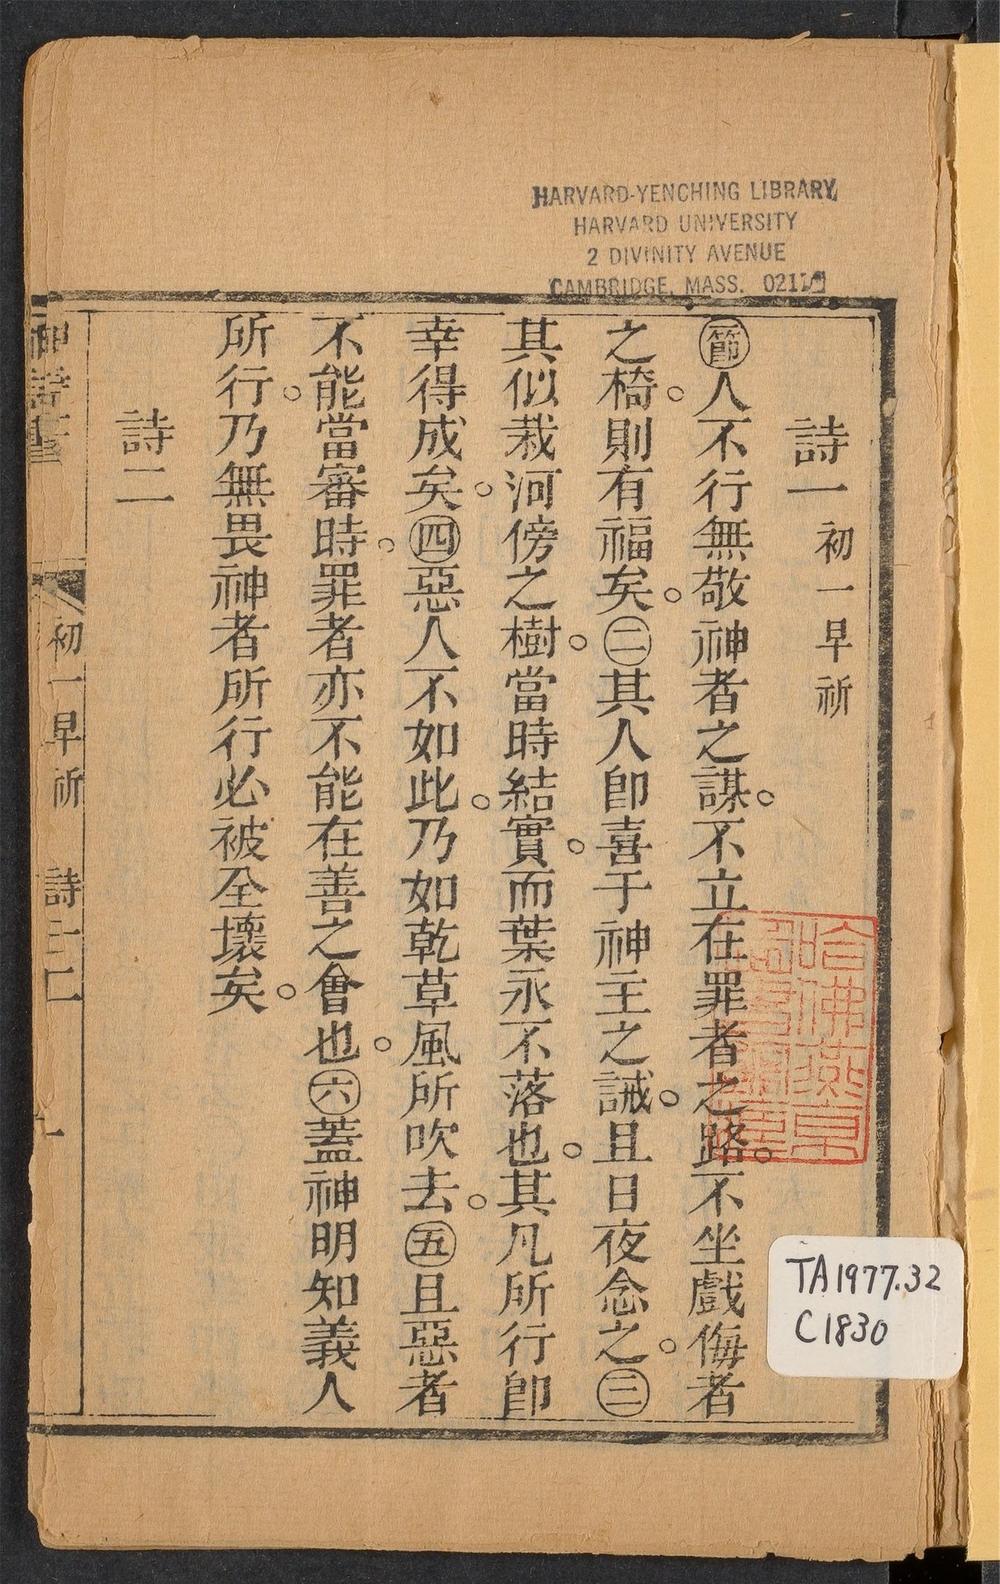 HARVARD-YENCHING LIBRARY
HARVARD UNIVERSITY
2 DIVINITY AVENUE
CAMBRIDGE, MASS.
詩一 初一早祈
節人不行無敬神者之謀。不立在罪者之路。不坐戲侮者
之椅。則有福矣。㊁其人即喜于神主之誡。且日夜念之。㊂
其似栽河傍之樹。當時結實。而葉永不落也。其凡所行即
幸得成矣。㊃惡人不如此。乃如乾草風所吹去。㊄且惡者
不能當審時。罪者亦不能在善之會也。㊅蓋神明知義人
所行。乃無畏神者所行必被全壞矣。
詩二
神詩書 初一早祈 詩一二
哈佛燕京
TA1977.32
C1830